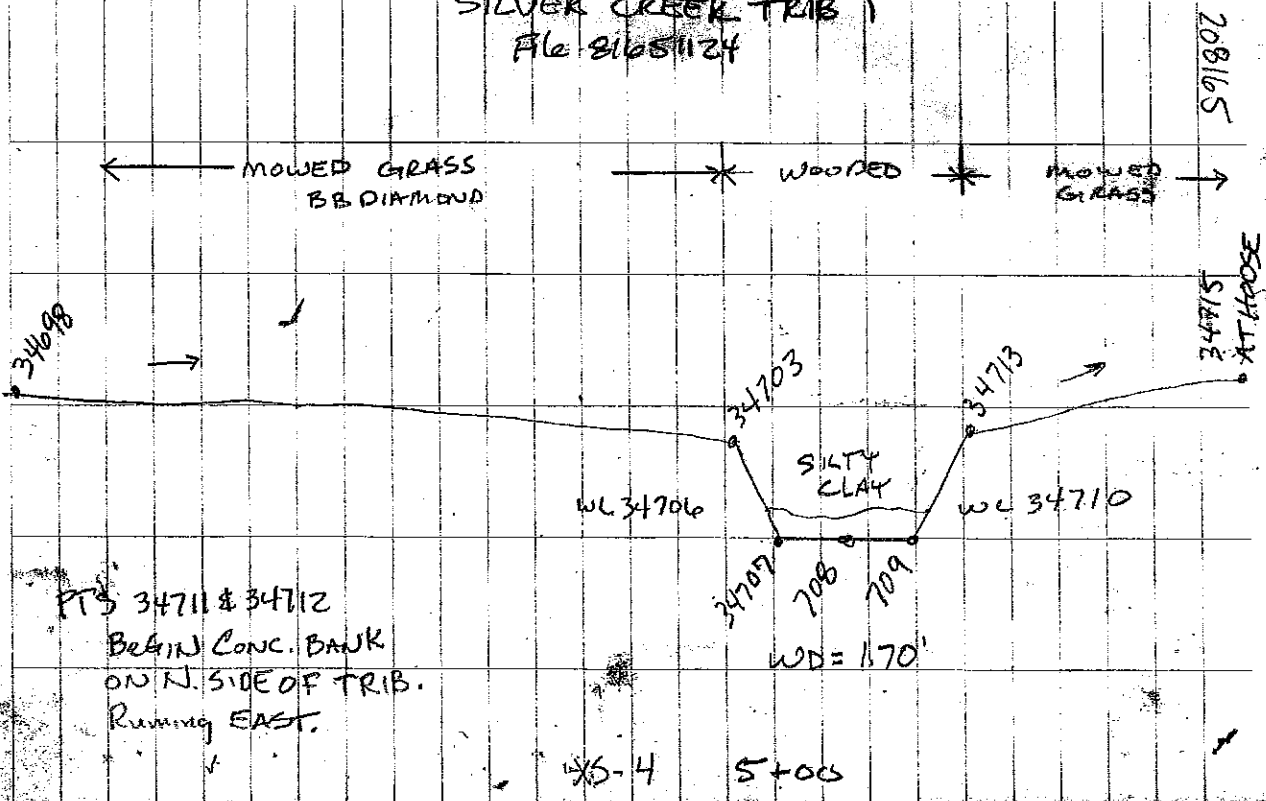 SILVER CREEK TRIB 1
File 81651124
208165
MOWED GRASS
BB DIAMOND
WOODED
MOWED
GRASS
34698
34703
34713
34715
AT HOOSE
SILTY
CLAY
WL 34706
WL 34710
34707
708
709
WD = 1.70'
PTS 34711 & 34712
BEGIN CONC. BANK
ON N. SIDE OF TRIB.
Running EAST.
XS-4 5+00